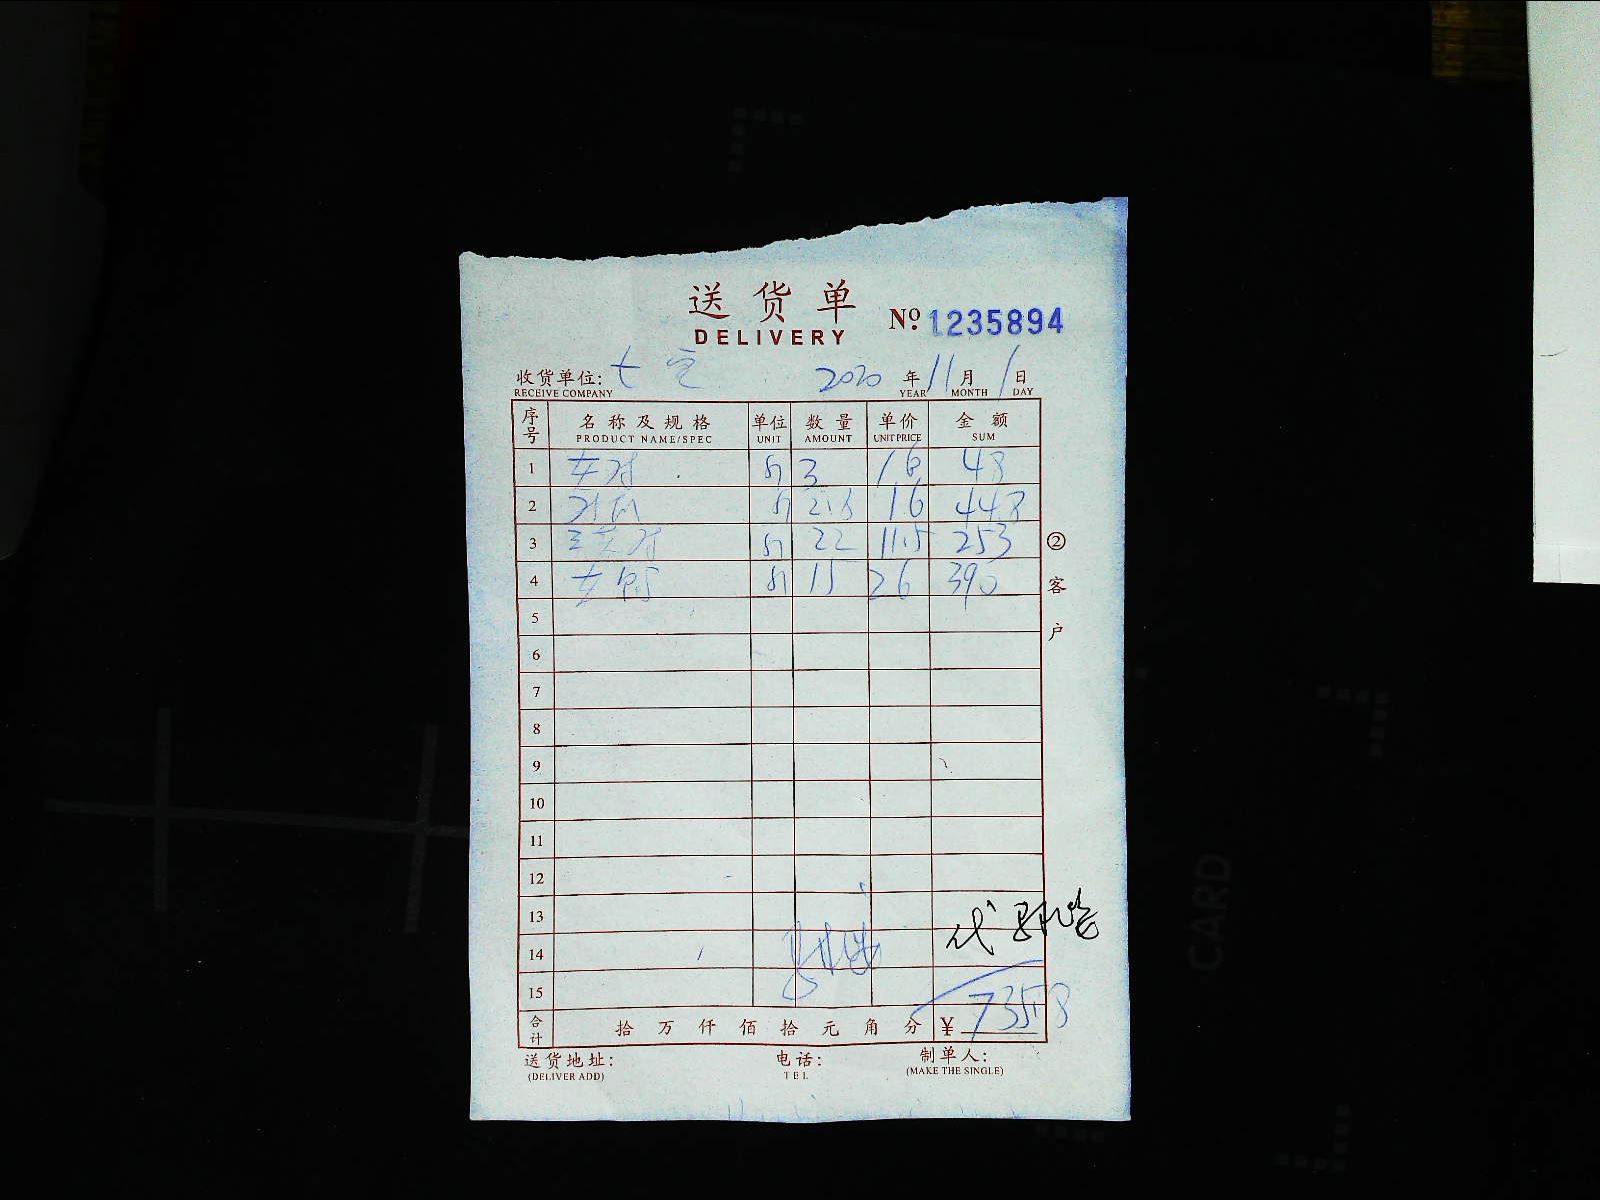 送货单 № 1235894
DELIVERY
收货单位: 七 2020 年 11 月 1 日
RECEIVE COMPANY YEAR MONTH DAY
序号 名称及规格 单位 数量 单价 金额
PRODUCT NAME/SPEC UNIT AMOUNT UNIT PRICE SUM
1 斤 3 16 48
2 斤 2.8 16 44.8
3 斤 22 11.5 253
4 斤 15 26 390
5
6
7
8
9
10
11
12
13 代
14
15
合计 拾 万 仟 佰 拾 元 角 分 ¥ 735.8
送货地址: 电话: 制单人:
(DELIVER ADD) TEL (MAKE THE SINGLE)
②客户
CARD